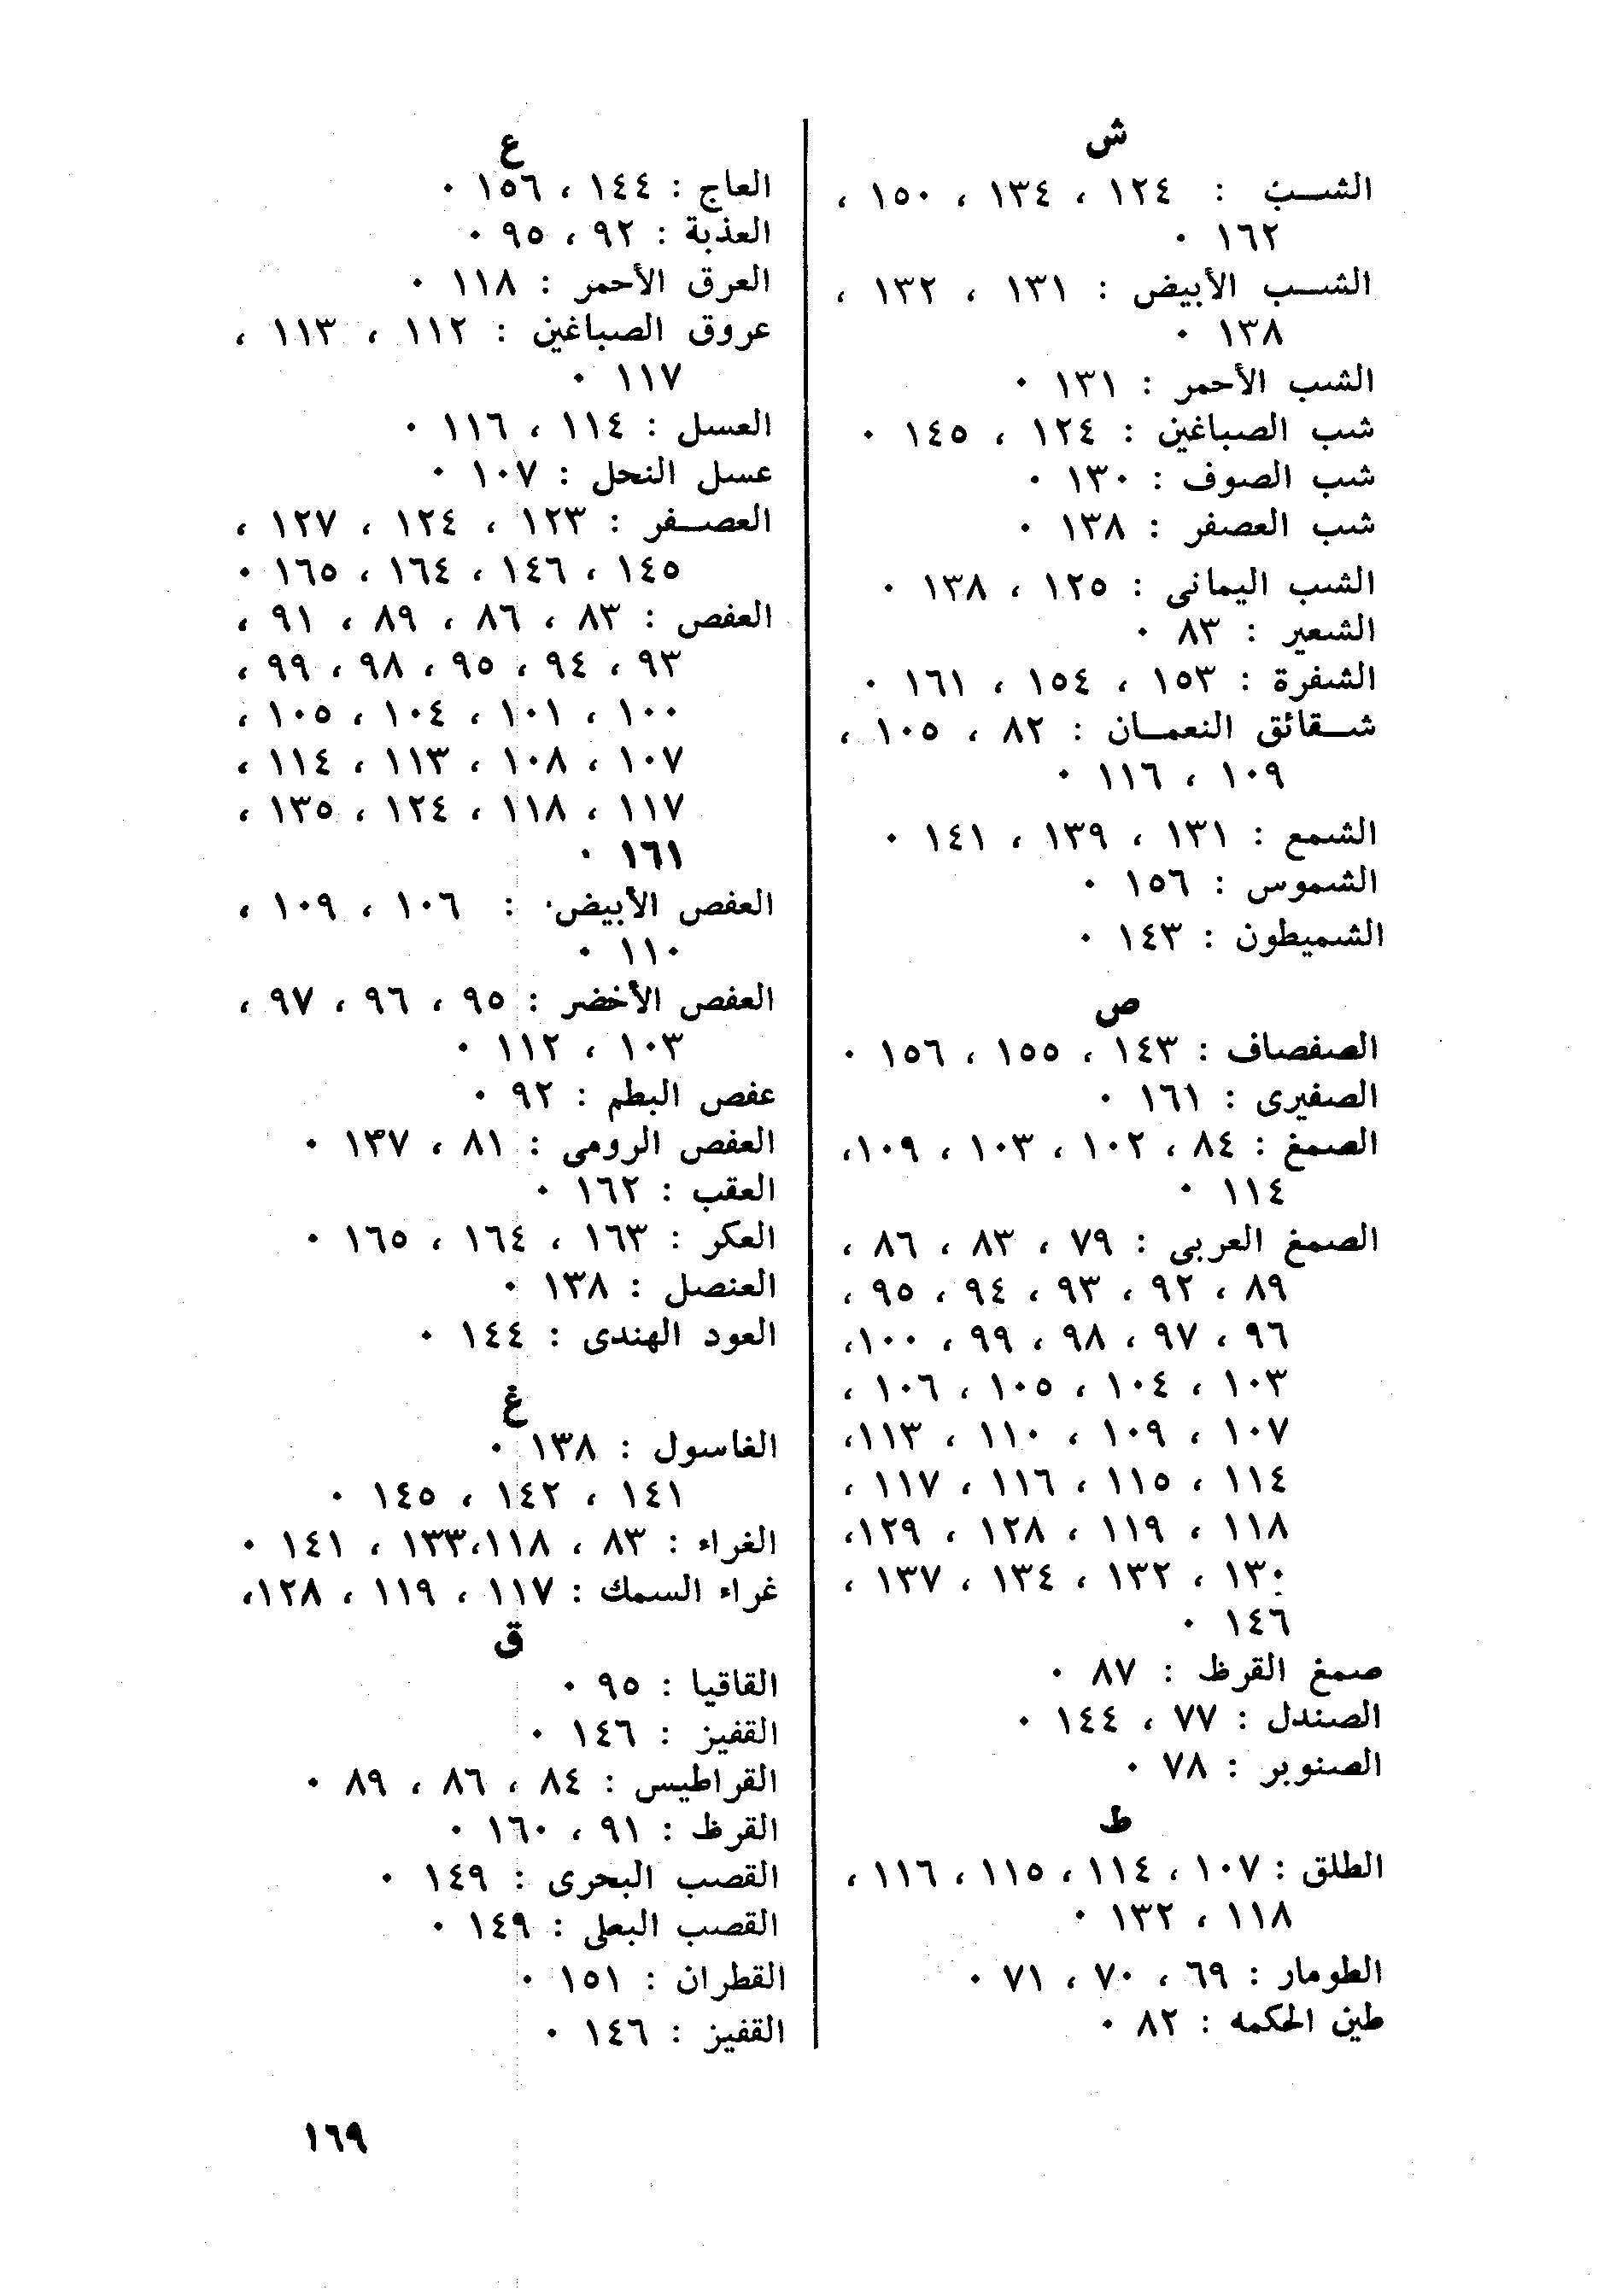 ش
الشب : ١٢٤ ، ١٣٤ ، ١٥٠ ،
١٦٢ ٠
الشب الأبيض : ١٣١ ، ١٣٢ ،
١٣٨ ٠
الشب الأحمر : ١٣١ ٠
شب الصباغين : ١٢٤ ، ١٤٥ ٠
شب الصوف : ١٣٠ ٠
شب العصفر : ١٣٨ ٠
الشب اليمانى : ١٢٥ ، ١٣٨ ٠
الشعير : ٨٣ ٠
الشفرة : ١٥٣ ، ١٥٤ ، ١٦١ ٠
شقائق النعمان : ٨٢ ، ١٠٥ ،
١٠٩ ، ١١٦ ٠
الشمع : ١٣١ ، ١٣٩ ، ١٤١ ٠
الشموس : ١٥٦ ٠
الشميطون : ١٤٣ ٠
ص
الصفصاف : ١٤٣ ، ١٥٥ ، ١٥٦ ٠
الصفيرى : ١٦١ ٠
الصمغ : ٨٤ ، ١٠٢ ، ١٠٣ ، ١٠٩،
١١٤ ٠
الصمغ العربى : ٧٩ ، ٨٣ ، ٨٦ ،
٨٩ ، ٩٢ ، ٩٣ ، ٩٤ ، ٩٥ ،
٩٦ ، ٩٧ ، ٩٨ ، ٩٩ ، ١٠٠،
١٠٣ ، ١٠٤ ، ١٠٥ ، ١٠٦ ،
١٠٧ ، ١٠٩ ، ١١٠ ، ١١٣،
١١٤ ، ١١٥ ، ١١٦ ، ١١٧ ،
١١٨ ، ١١٩ ، ١٢٨ ، ١٢٩،
١٣٠ ، ١٣٢ ، ١٣٤ ، ١٣٧ ،
١٤٦ ٠
صمغ القرظ : ٨٧ ٠
الصندل : ٧٧ ، ١٤٤ ٠
الصنوبر : ٧٨ ٠
ط
الطلق : ١٠٧ ، ١١٤ ، ١١٥ ، ١١٦ ،
١١٨ ، ١٣٢ ٠
الطومار : ٦٩ ، ٧٠ ، ٧١ ٠
طين الحكمه : ٨٢ ٠
ع
العاج : ١٤٤ ، ١٥٦ ٠
العذبة : ٩٢ ، ٩٥ ٠
العرق الأحمر : ١١٨ ٠
عروق الصباغين : ١١٢ ، ١١٣ ،
١١٧ ٠
العسل : ١١٤ ، ١١٦ ٠
عسل النحل : ١٠٧ ٠
العصفر : ١٢٣ ، ١٢٤ ، ١٢٧ ،
١٤٥ ، ١٤٦ ، ١٦٤ ، ١٦٥ ٠
العفص : ٨٣ ، ٨٦ ، ٨٩ ، ٩١ ،
٩٣ ، ٩٤ ، ٩٥ ، ٩٨ ، ٩٩ ،
١٠٠ ، ١٠١ ، ١٠٤ ، ١٠٥ ،
١٠٧ ، ١٠٨ ، ١١٣ ، ١١٤ ،
١١٧ ، ١١٨ ، ١٢٤ ، ١٣٥ ،
١٦١ ٠
العفص الأبيض : ١٠٦ ، ١٠٩ ،
١١٠ ٠
العفص الأخضر : ٩٥ ، ٩٦ ، ٩٧ ،
١٠٣ ، ١١٢ ٠
عفص البطم : ٩٢ ٠
العفص الرومى : ٨١ ، ١٣٧ ٠
العقب : ١٦٢ ٠
العكر : ١٦٣ ، ١٦٤ ، ١٦٥ ٠
العنصل : ١٣٨ ٠
العود الهندى : ١٤٤ ٠
غ
الغاسول : ١٣٨ ٠
١٤١ ، ١٤٢ ، ١٤٥ ٠
الغراء : ٨٣ ، ١١٨،١٣٣ ، ١٤١ ٠
غراء السمك : ١١٧ ، ١١٩ ، ١٢٨،
ق
القاقيا : ٩٥ ٠
القفيز : ١٤٦ ٠
القراطيس : ٨٤ ، ٨٦ ، ٨٩ ٠
القرظ : ٩١ ، ١٦٠ ٠
القصب البحرى : ١٤٩ ٠
القصب البعلى : ١٤٩ ٠
القطران : ١٥١ ٠
القفيز : ١٤٦ ٠
١٦٩